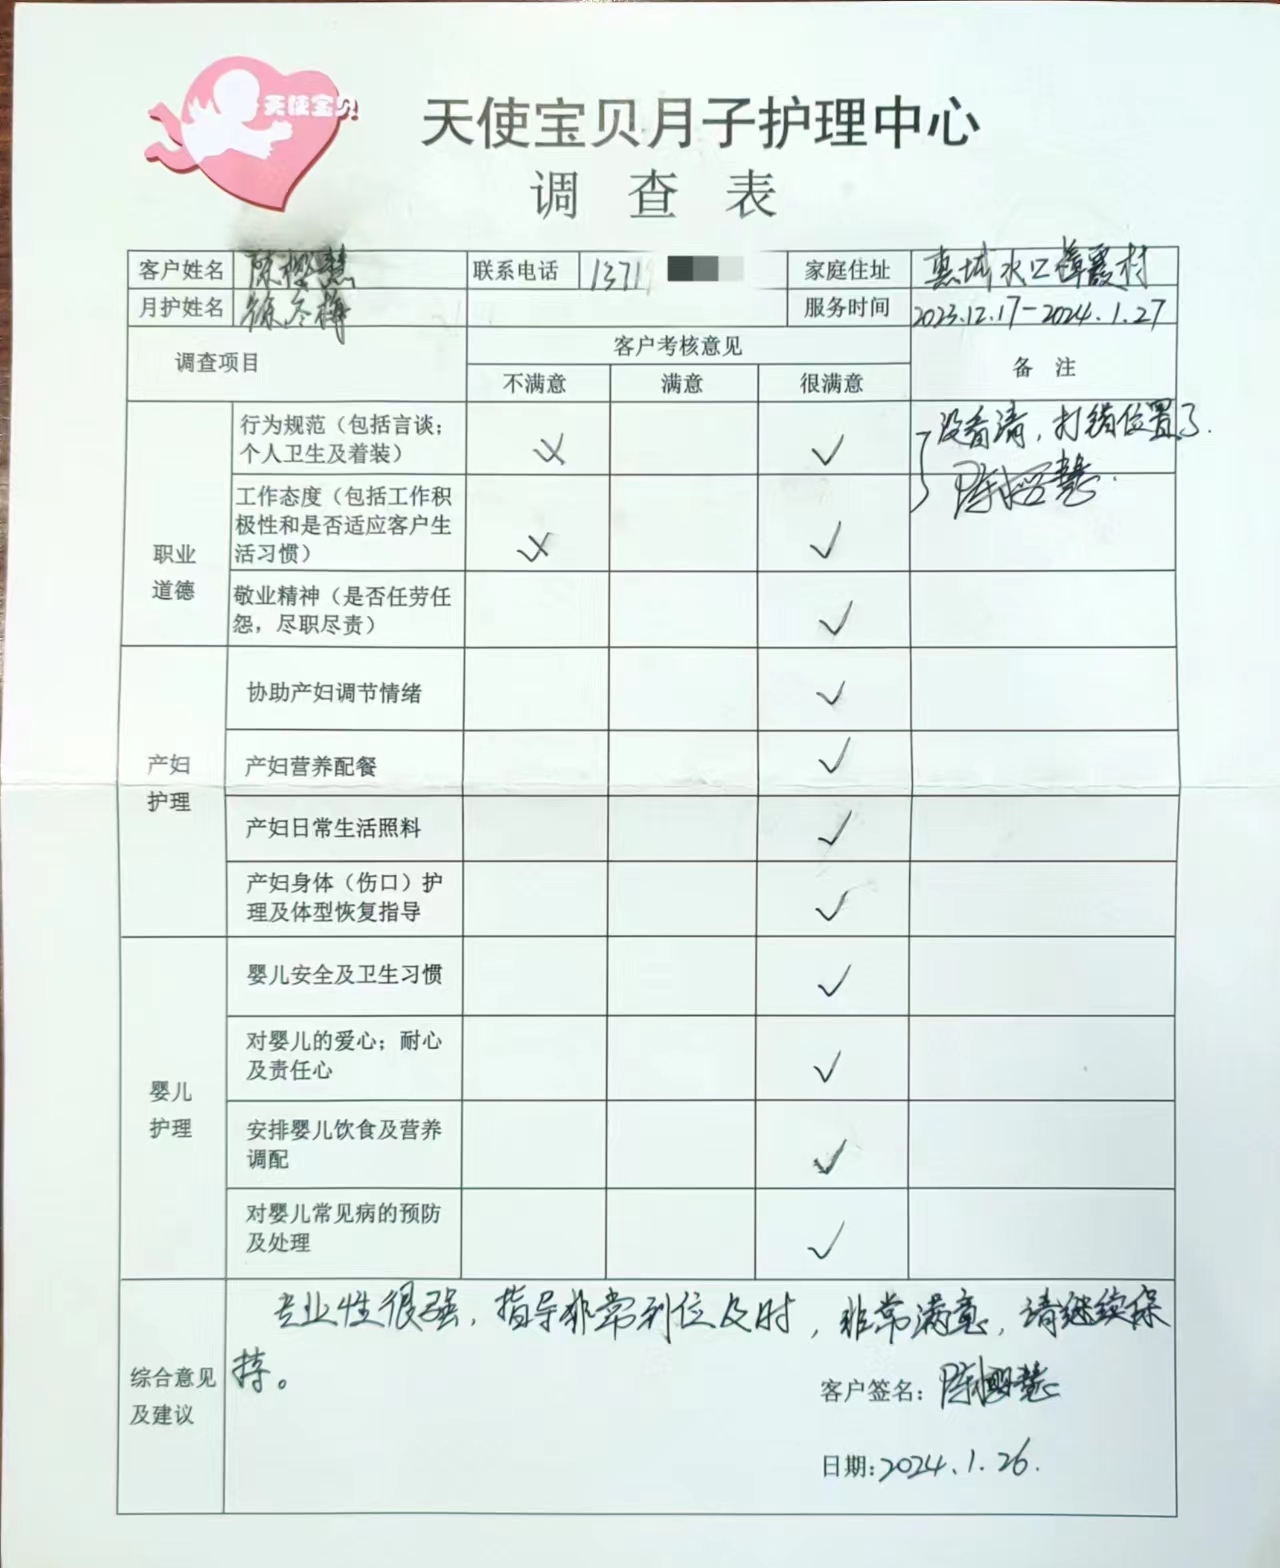 天使宝贝
天使宝贝月子护理中心
调查表
客户姓名 陈樱慧 联系电话 1371 家庭住址 惠城水口樟霞村
月护姓名 徐冬梅 服务时间 2023.12.17-2024.1.27
调查项目 客户考核意见 备注
不满意 满意 很满意
职业
道德
行为规范（包括言谈；
个人卫生及着装）
没看清，打错位置了.
陈樱慧.
工作态度（包括工作积
极性和是否适应客户生
活习惯）
敬业精神（是否任劳任
怨，尽职尽责）
产妇
护理
协助产妇调节情绪
产妇营养配餐
产妇日常生活照料
产妇身体（伤口）护
理及体型恢复指导
婴儿
护理
婴儿安全及卫生习惯
对婴儿的爱心；耐心
及责任心
安排婴儿饮食及营养
调配
对婴儿常见病的预防
及处理
综合意见
及建议
专业性很强，指导非常到位及时，非常满意，请继续保
持。
客户签名：陈樱慧
日期：2024.1.26.